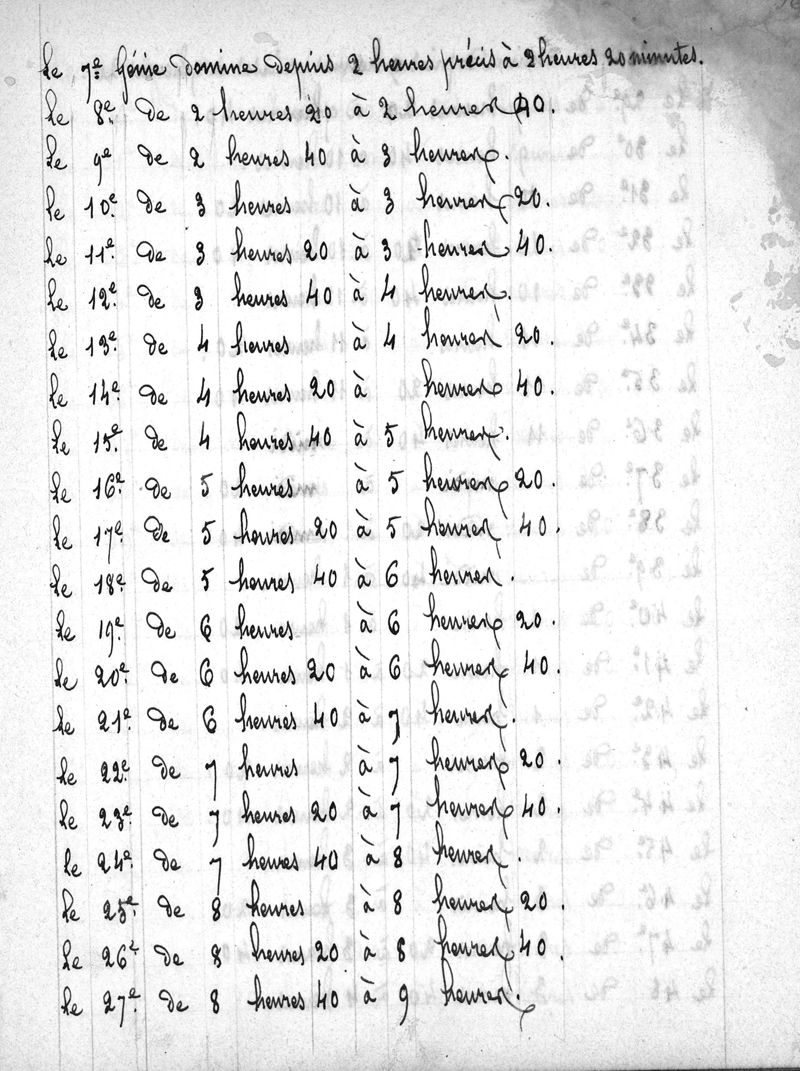 le 7e Génie domine depuis 2 heures précis à 2 heures 20 minutes.
le 8e de 2 heures 20 à 2 heures 40.
le 9e de 2 heures 40 à 3 heures.
le 10e de 3 heures à 3 heures 20.
le 11e de 3 heures 20 à 3 heures 40.
le 12e de 3 heures 40 à 4 heures.
le 13e de 4 heures à 4 heures 20.
le 14e de 4 heures 20 à heures 40.
le 15e de 4 heures 40 à 5 heures.
le 16e de 5 heures à 5 heures 20.
le 17e de 5 heures 20 à 5 heures 40.
le 18e de 5 heures 40 à 6 heures.
le 19e de 6 heures à 6 heures 20.
le 20e de 6 heures 20 à 6 heures 40.
le 21e de 6 heures 40 à 7 heures.
le 22e de 7 heures à 7 heures 20.
le 23e de 7 heures 20 à 7 heures 40.
le 24e de 7 heures 40 à 8 heures.
le 25e de 8 heures à 8 heures 20.
le 26e de 8 heures 20 à 8 heures 40.
le 27e de 8 heures 40 à 9 heures.